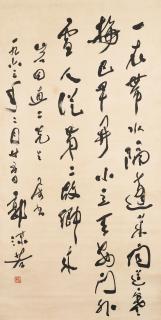 一衣帶水隔蓬萊聞道寒
梅已早開小立門外
雪人從第二故鄉來
岩田直二先生
一九六三年二月廿日 郭沫若